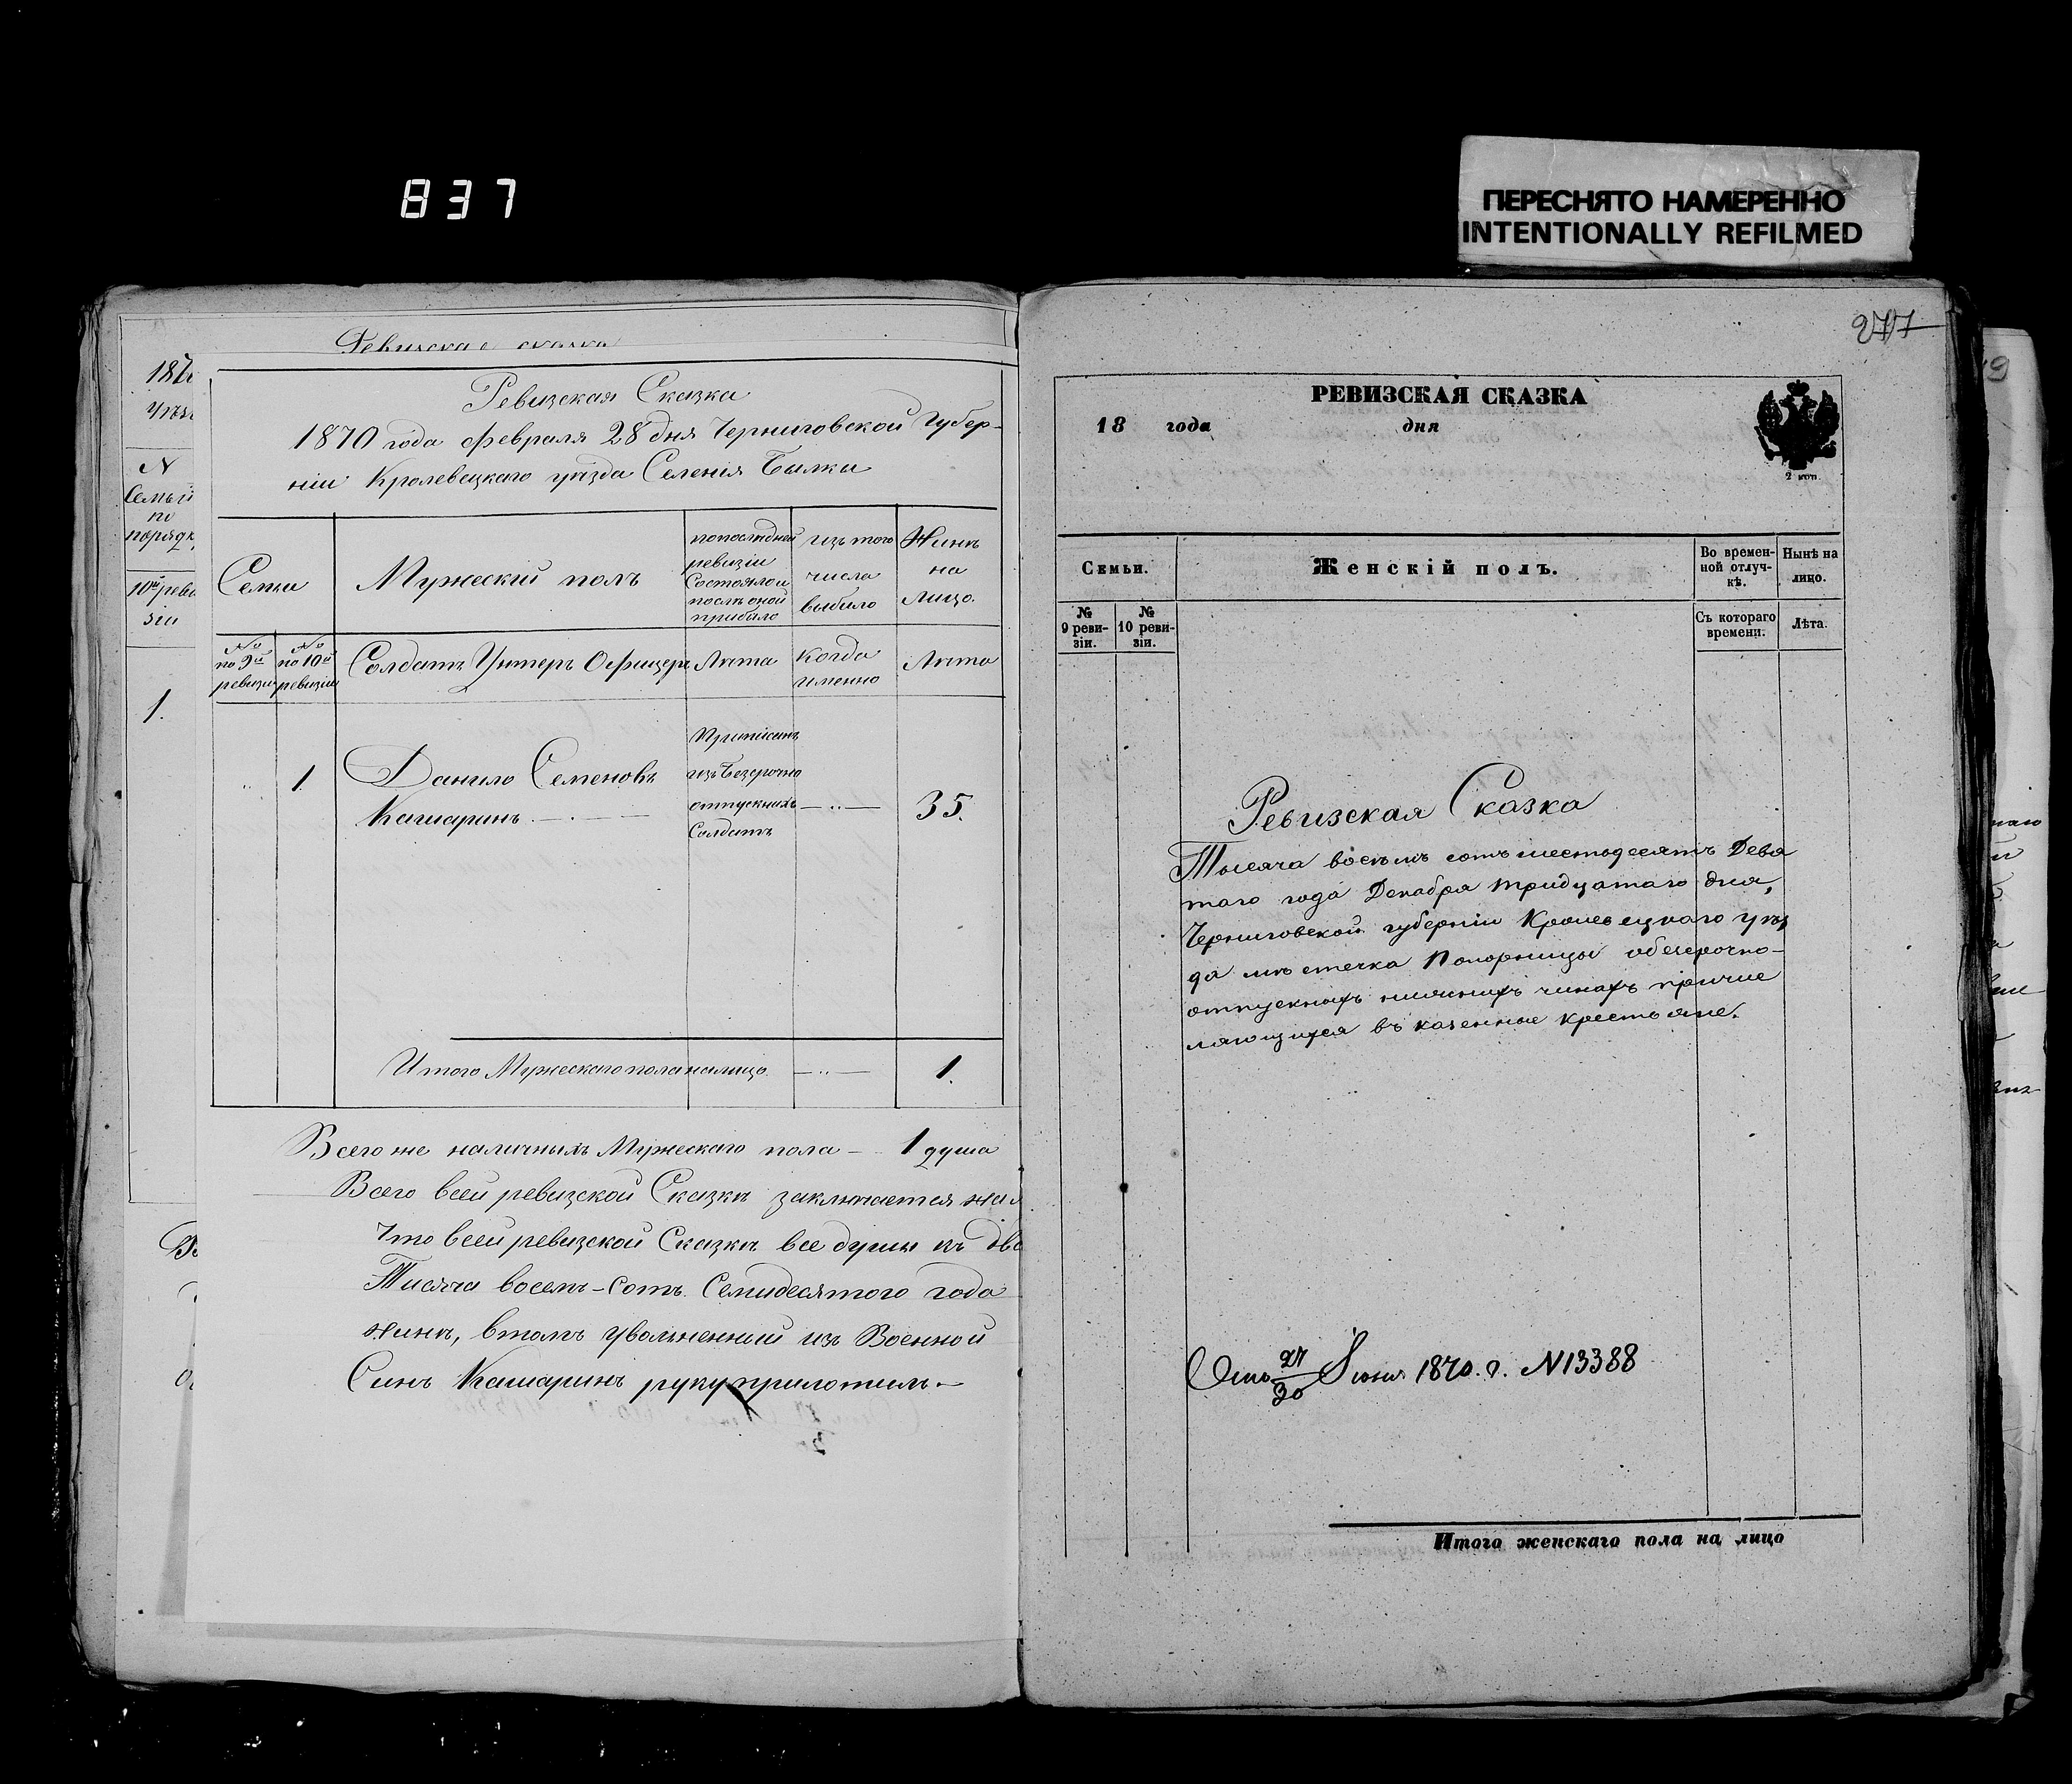 837
ПЕРЕСНЯТО НАМЕРЕННО
INTENTIONALLY REFILMED
Ревизская сказка
187
N
Семьи
по
порядк
10й реви
зiи
1.
Ревизская Сказка
1870 года февраля 28 дня Черниговской Губер-
нiи Кролевецкаго уѣзда Селенiя Билки
Семьи
Мужеский полъ
попослѣдней
ревизiи
Состояло и
послѣ оной
прибило
изъ того
числа
выбило
Нинѣ
на
лицо.
№
по 9й
ревизiи
№
по 10й
ревизiи
Солдатъ Унтеръ Офицеръ
Лѣта
Когда
именно
Лѣта
1
Данило Семеновъ
Кашаринъ
Приписанъ
изъ Безсрочно
отпускнихъ
Солдатъ
35.
Итого Мужескаго пола налицо
1.
Всего же наличнихъ Мужескаго пола – 1 душа
Всего всей ревизской Сказкѣ заключается
Что всей ревизской Сказкѣ все души къ
Тисяча восемъ-сотъ Семидесятого года
нинѣ, втомъ уволненний изъ Военной
Синъ Кашаринъ руку приложилъ.–
277
РЕВИЗСКАЯ СКАЗКА
18 года дня
2 коп.
Семьи.
Женскiй полъ.
Во времен-
ной отлуч-
кѣ.
Нынѣ на
лицо.
№
9 реви-
зiи.
№
10 реви-
зiи.
Съ котораго
времени.
Лѣта.
Ревизская Сказка
Тысяча восемъ сотъ шестодесятъ Девя
таго года Декабря тридцатаго дня,
Черниговской губернiи Кролевецкаго уѣз
да мѣстечка Понорницы обезсрочно-
отпускныхъ нижнихъ чинахъ причис
ляющихся въ казенные крестьяне.
От 27/30 Iюня 1870. г. N 13388
Итого женскаго пола на лицо